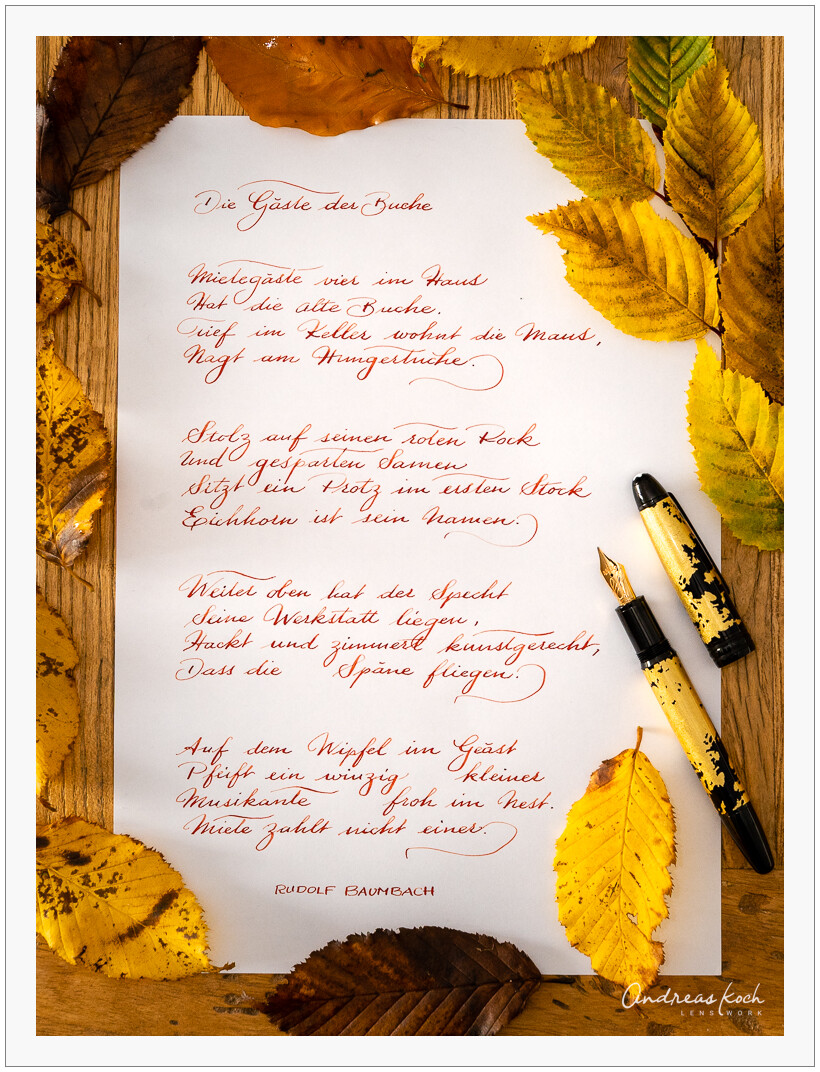 Die Gäste der Buche
Mietegäste vier im Haus
Hat die alte Buche.
Tief im Keller wohnt die Maus,
Nagt am Hungertuche.
Stolz auf seinen roten Rock
Und gesparten Samen
Sitzt ein Protz im ersten Stock
Eichhorn ist sein Namen.
Weiter oben hat der Specht
Seine Werkstatt liegen,
Hackt und zimmert kunstgerecht,
Dass die Späne fliegen.
Auf dem Wipfel im Geäst
Pfeift ein winzig kleiner
Musikante froh im Nest.
Miete zahlt nicht einer.
RUDOLF BAUMBACH
Andreas Koch
LENSWORK